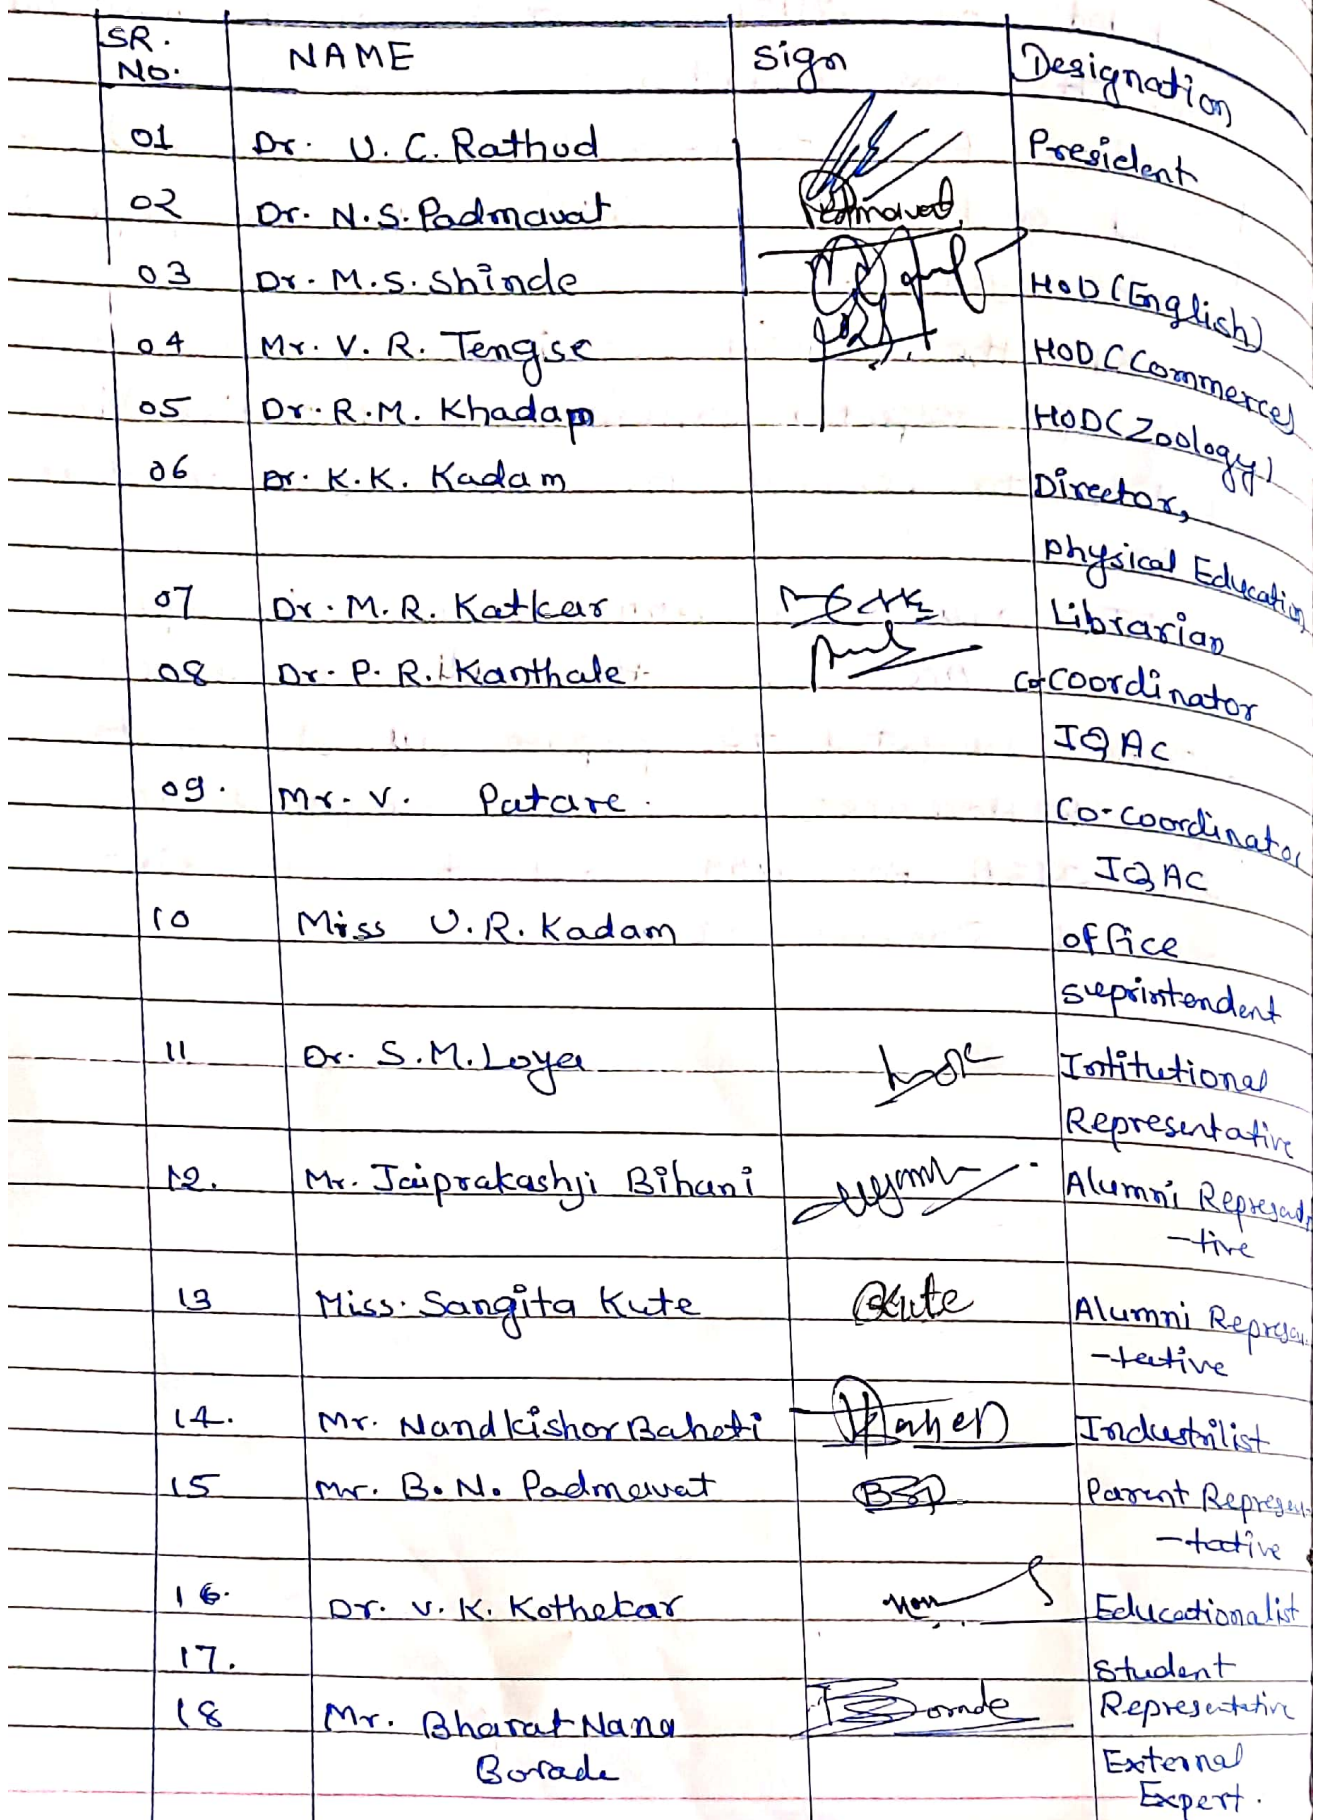 SR. No. NAME Sign Designation
01 Dr. U. C. Rathod President
02 Dr. N. S. Padmavat Padmavat
03 Dr. M. S. Shinde HOD (English)
04 Mr. V. R. Tengse HOD (Commerce)
05 Dr. R. M. Khadap HOD (Zoology)
06 Dr. K. K. Kadam Director,
Physical Education
07 Dr. M. R. Katkar Librarian
08 Dr. P. R. Kanthale Coordinator
IQAC
09. Mr. V. Patare. Co-coordinator
IQAC
10 Miss U. R. Kadam office
suprintendent
11 Dr. S. M. Loya Institutional
Representative
12. Mr. Jaiprakashji Bihani Alumni Represent
-tive
13 Miss. Sangita Kute Kute Alumni Represen
-tative
14. Mr. Nandkishor Baheti Industrilist
15 Mr. B. N. Padmavat BSP Parent Represen
-tative
16. Dr. V. K. Kothekar Educationalist
17. Student
18 Mr. Bharat Nana Borade Representative
Borade External
Expert.